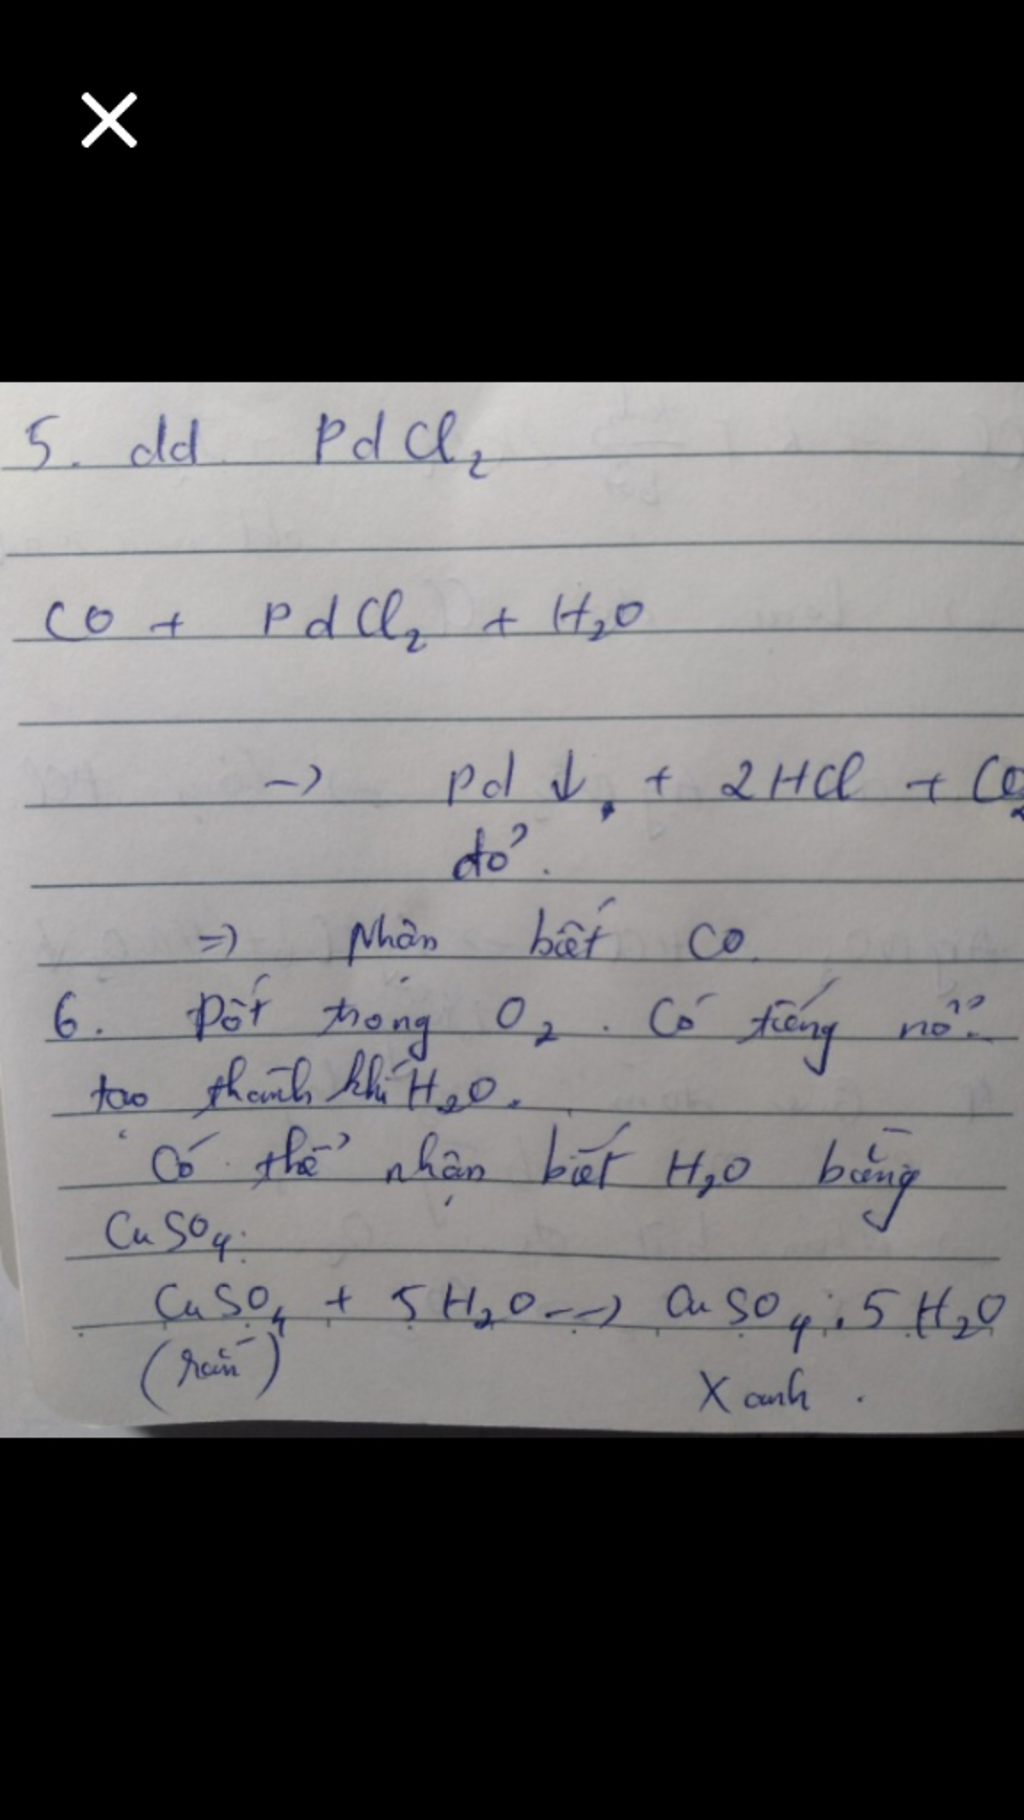 5. dd PdCl₂
CO + PdCl₂ + H₂O
-> Pd ↓ + 2HCl + CO₂
đỏ.
=> Nhận biết CO.
6. Đốt trong O₂. Có tiếng nổ.
tạo thành khí H₂O.
Có thể nhận biết H₂O bằng
CuSO₄:
CuSO₄ + 5H₂O --> CuSO₄.5H₂O
(rắn) Xanh.